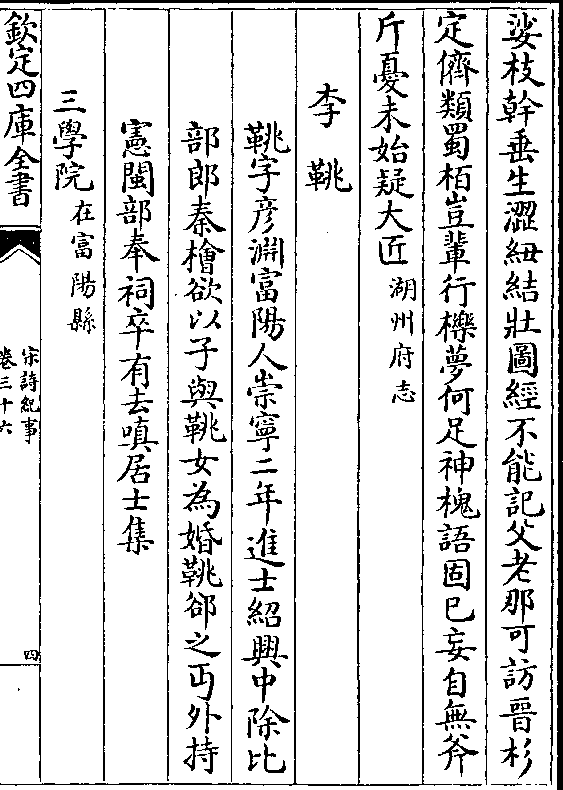 娑枝幹垂生澀紐結壯圖經不能記父老那可訪晉杉
定儕類蜀栢豈輩行櫟夢何足神槐語固已妄自無斧
斤憂未始疑大匠湖州府志
李鞉
鞉字彦淵富陽人崇寧二年進士紹興中除比
部郎秦檜欲以子與鞉女為婚鞉郤之丏外持
憲閩部奉祠卒有去嗔居士集
三學院在富陽縣
欽定四庫全書
宋詩紀事
卷三十六
四